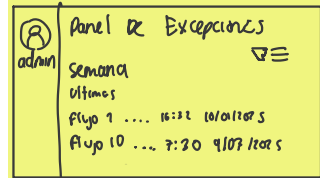 Panel de Excepciones
admin
Semana
Ultimas
Flujo 1 .... 16:32 10/01/2025
Flujo 10 ... 7:30 9/07/2025